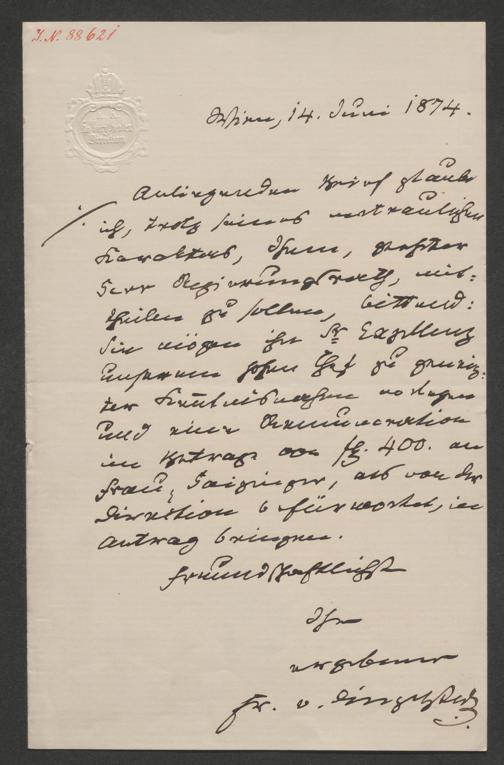 I.N. 88621
Burgtheater
Direction
Wien, 14. Juni 1874.
Anliegenden Brief glaube
ich, trotz seines vertraulichen
Karakters, Ihnen, geehrter
Herr Regierungsrath, mit-
theilen zu sollen, bittend:
Sie mögen ihn Sr Exzellenz
unserem Chef zu geneig-
ter Kentnisnahme vorlegen
und eine Remuneration
im Betrage von fl. 400. an
Frau Haizinger, als von der
Direktion befürwortet, in
Antrag bringen.
Freundschaftlichst
Ihr
ergebener
Fr. v. Dingelstedt